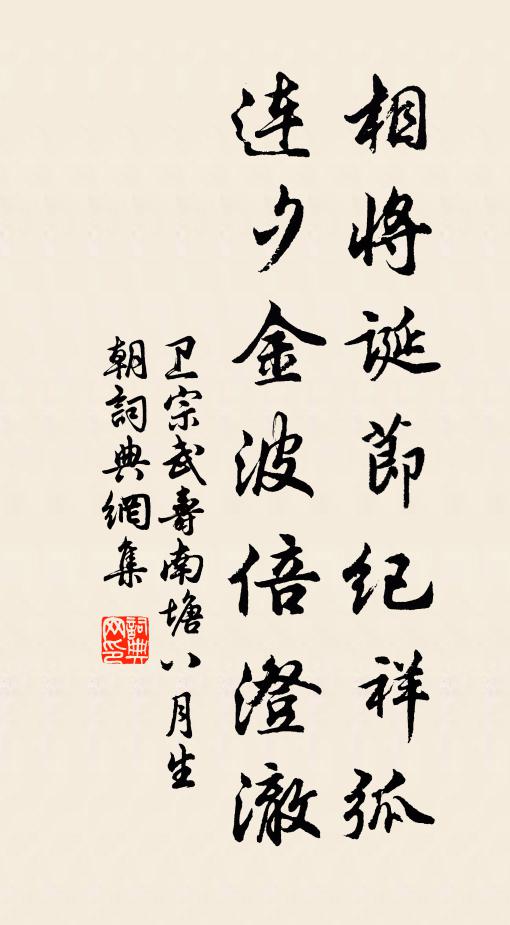 相將誕節纪祥弧
連夕金波倍澄澈
卫宗武壽南塘八月生
朝詞典網集
詞典网印